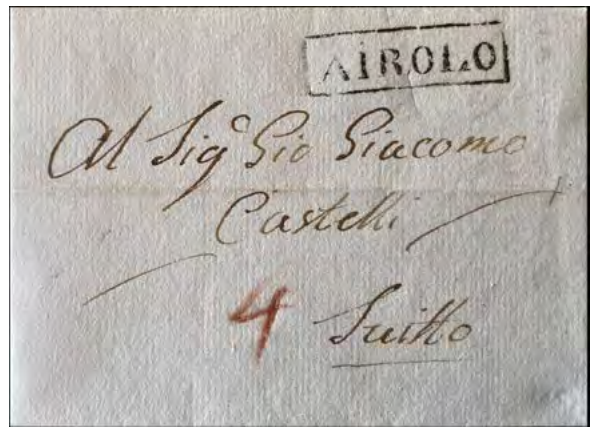 AIROLO
Al Sigᵉ Gio Giacomo
Castelli
4 Suitto